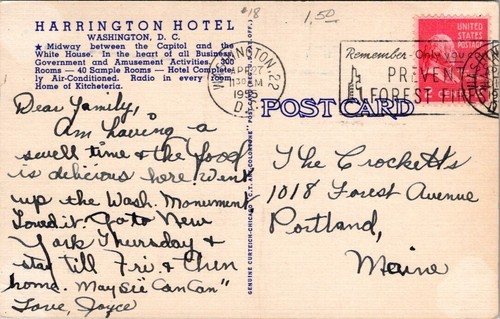 HARRINGTON HOTEL
WASHINGTON, D. C.
★ Midway between the Capitol and the
White House. In the heart of all Business,
Government and Amusement Activities. 300
Rooms — 40 Sample Rooms — Hotel Complete-
ly Air-Conditioned. Radio in every room.
Home of Kitcheteria.
#18
1.50
WASHINGTON, 22
APR 27
11 30 AM
1955
D.C.
Remember-Only you
PREVENT
FOREST
UNITED
STATES
POSTAGE
POST CARD
GENUINE CURTEICH-CHICAGO "C.T. ART-COLORTONE" POST CARD
Dear Family,
Am having a
swell time & the food
is delicious here. Went
up the Wash. Monument
Loved it. Go to New
York Thursday &
stay till Fri. & then
home. May see "Can Can"
Love, Joyce
The Crocketts
1018 Forest Avenue
Portland,
Maine